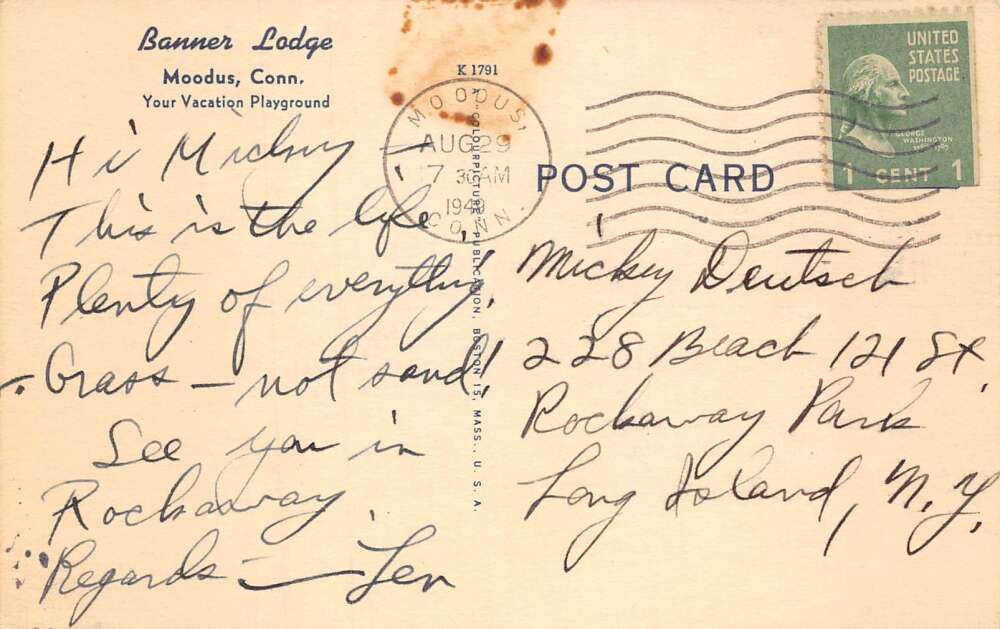 Banner Lodge
Moodus, Conn.
Your Vacation Playground
K 1791
MOODUS,
AUG 29
7 30 AM
CONN.
POST CARD
UNITED
STATES
POSTAGE
GEORGE
WASHINGTON
1 CENT 1
"COLOURPICTURE" PUBLICATION, BOSTON 15, MASS., U.S.A.
Hi Mickey —
This is the life,
Plenty of everything,
Grass — not sand!
See you in
Rockaway.
Regards — Len
Mickey Deutsch
228 Beach 121 St.
Rockaway Park
Long Island, N.Y.